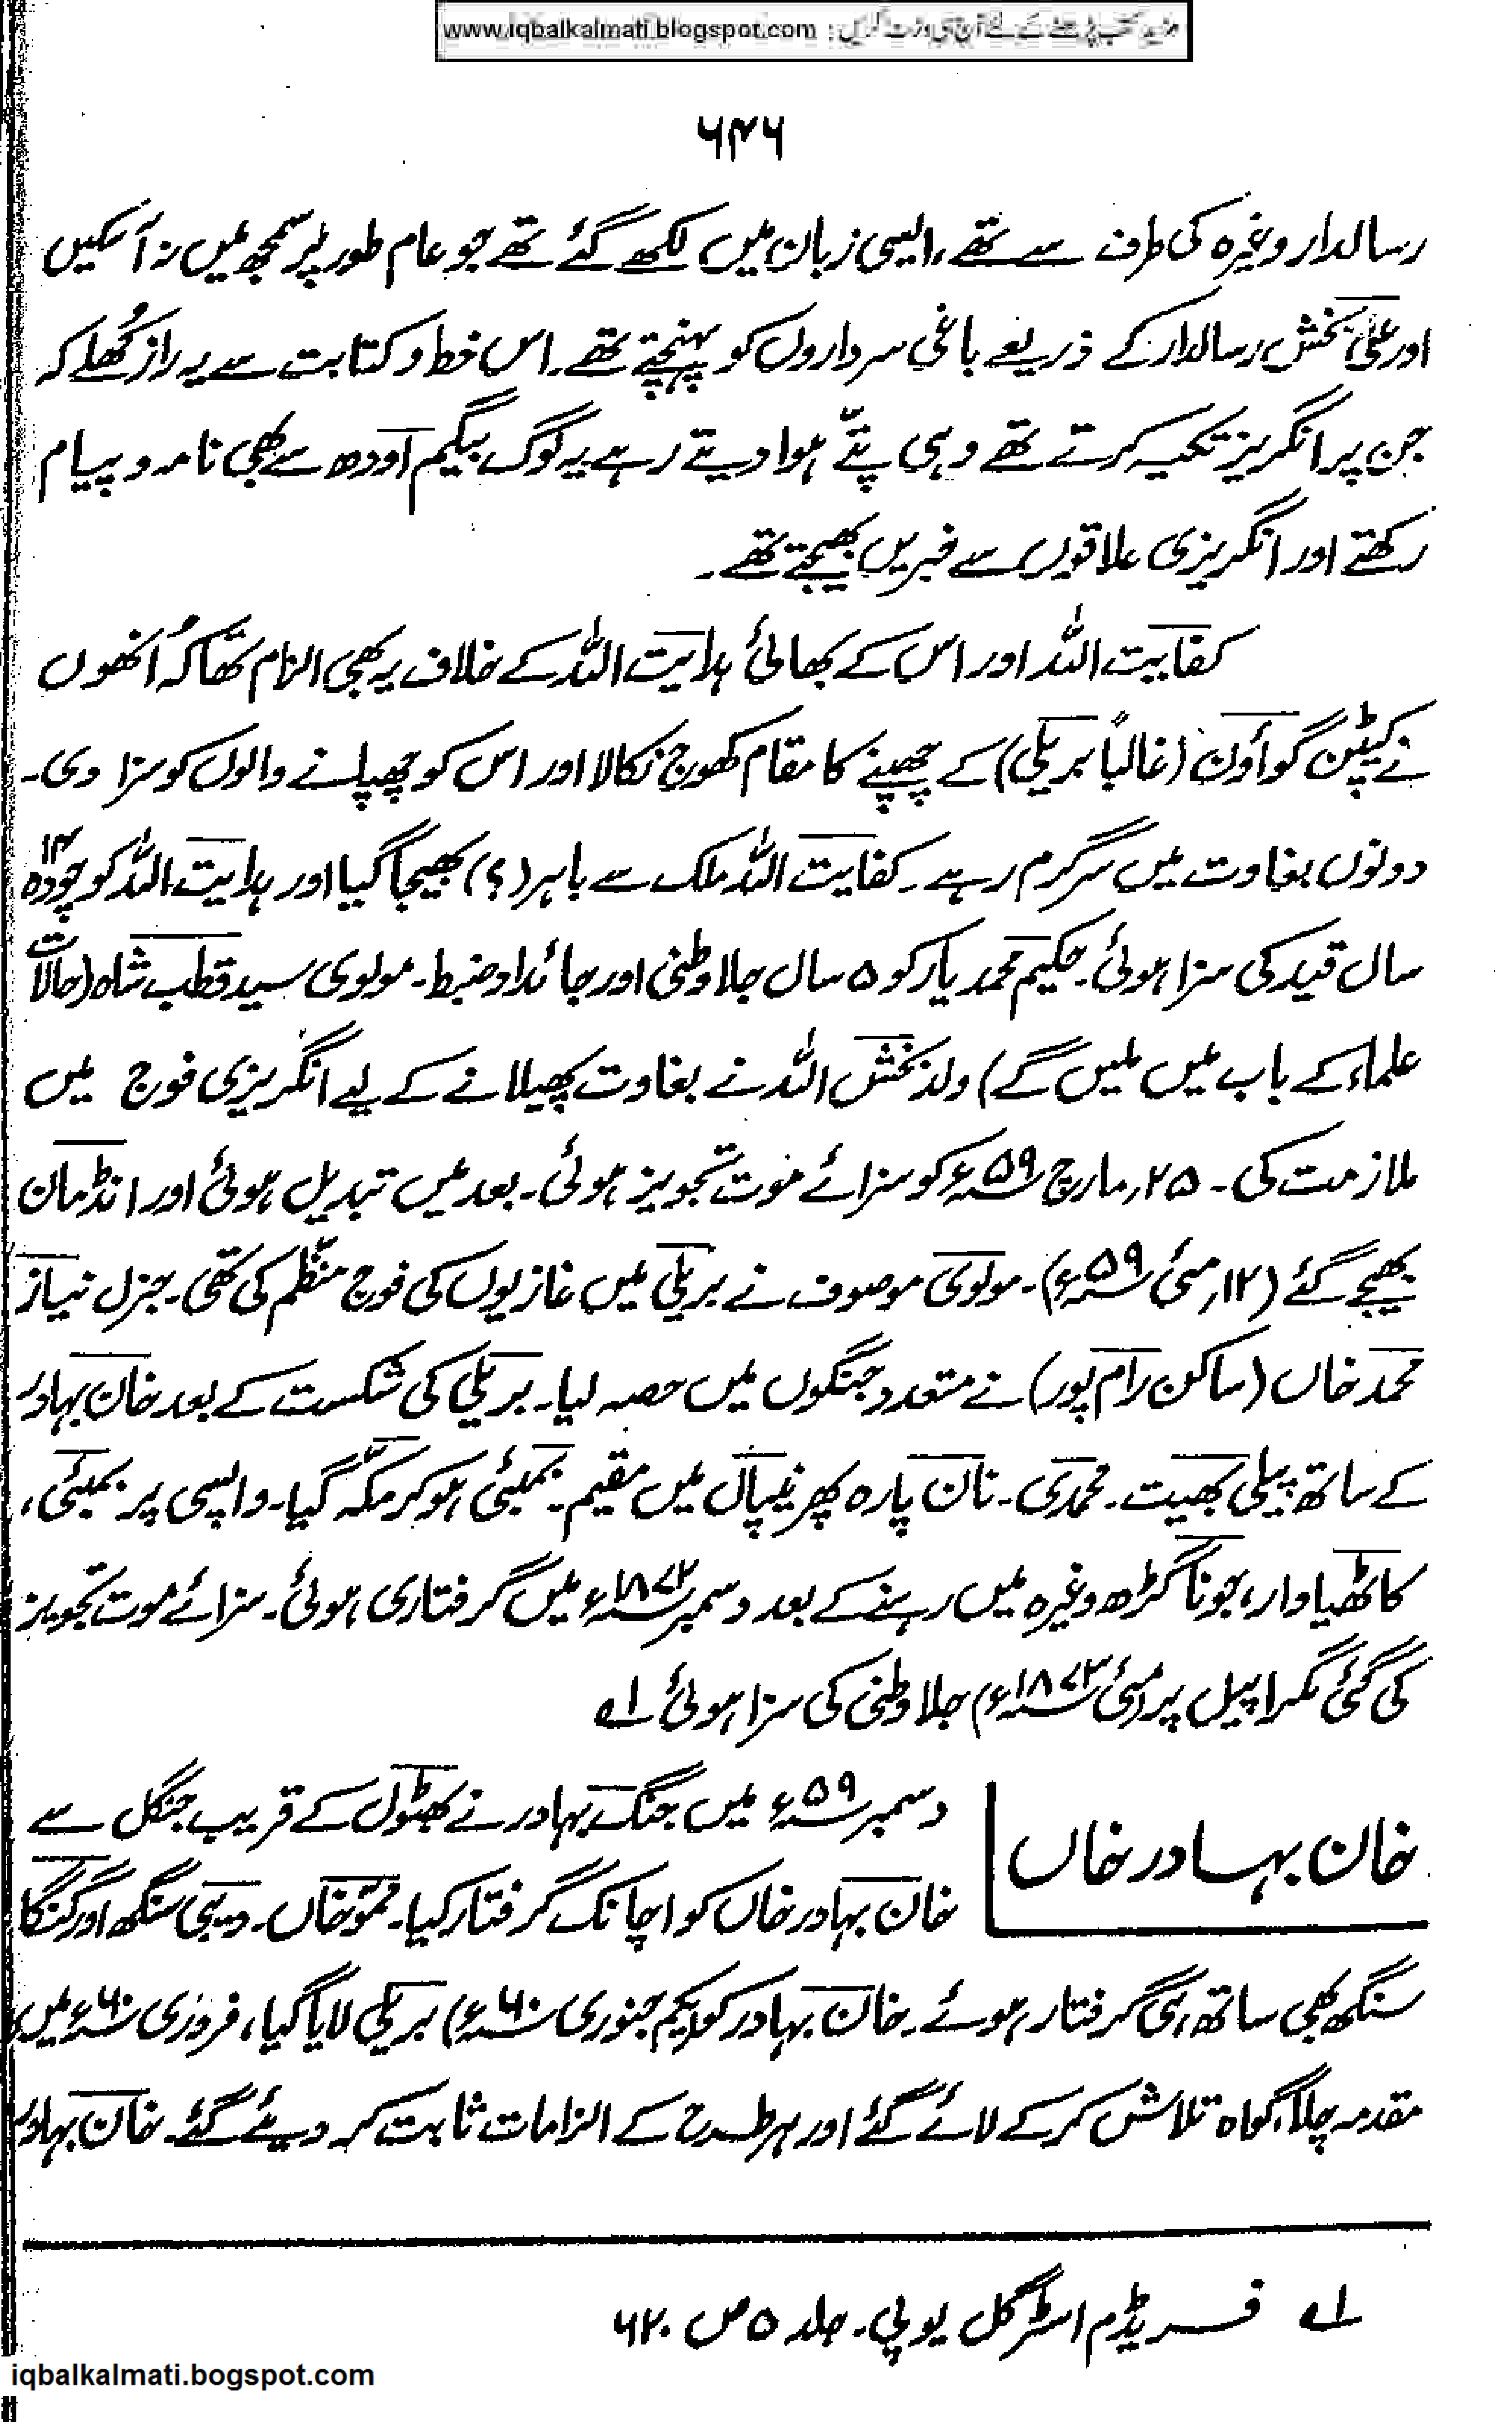 مزید کتب پڑھنے کے لئے آج ہی وزٹ کریں : www.iqbalkalmati.blogspot.com
۶۴۶
رسالدار وغیرہ کی طرف سے تھے، ایسی زبان میں لکھے گئے تھے جو عام طور پر سمجھ میں نہ آسکیں
اور علی بخش رسالدار کے ذریعے باغی سرداروں کو پہنچتے تھے۔ اس خط و کتابت سے یہ راز کُھلے کہ
جن پر انگریز تکیہ کرتے تھے وہی پتّے ہوا دیتے رہے یہ لوگ بیگم اَودھ سے بھی نامہ و پیام
رکھتے اور انگریزی علاقوں سے خبریں بھیجتے تھے۔
کفایت اللہ اور اس کے بھائی ہدایت اللہ کے خلاف یہ بھی الزام تھا کہ اُنھوں
نے کیپٹن گواؤن (غالباً بریلی) کے چھپنے کا مقام کھوج نکالا اور اس کو چھپانے والوں کو سزا دی۔
دونوں بغاوت میں سرگرم رہے۔ کفایت اللہ ملک سے باہر (؟) بھیجا گیا اور ہدایت اللہ کو چودہ ۱۴
سال قید کی سزا ہوئی۔ حکیم محمد یار کو ۵ سال جلاوطنی اور جائداد ضبط۔ مولوی سید قطب شاہ (حالات
علماء کے باب میں ملیں گے) ولد بخش اللہ نے بغاوت پھیلانے کے لیے انگریزی فوج میں
ملازمت کی۔ ۲۵؍ مارچ ۵۹ء کو سزائے موت تجویز ہوئی۔ بعد میں تبدیل ہوئی اور انڈمان
بھیجے گئے (۱۲؍ مئی ۵۹ء)۔ مولوی موصوف نے بریلی میں غازیوں کی فوج منظّم کی تھی۔ جنرل نیاز
محمد خاں (ساکن رام پور) نے متعدد جنگوں میں حصہ لیا۔ بریلی کی شکست کے بعد خان بہادر
کے ساتھ پیلی بھیت۔ محمدی۔ نان پارہ پھر نیپال میں مقیم۔ بمبئی ہو کر مکّہ گیا۔ واپسی پر بمبئی،
کاٹھیاوار، جوناگڑھ وغیرہ میں رہنے کے بعد دسمبر ۱۸۷۲ء میں گرفتاری ہوئی۔ سزائے موت تجویز
کی گئی مگر اپیل پر (مئی ۱۸۷۳ء) جلاوطنی کی سزا ہوئی ۱ھ
خان بہادر خاں
دسمبر ۵۹ء میں جنگ بہادر نے بھٹول کے قریب جنگل سے
خان بہادر خاں کو اچانک گرفتار کیا۔ ممّو خاں۔ دیبی سنگھ اور گنگا
سنگھ بھی ساتھ ہی گرفتار ہوئے۔ خان بہادر کو (یکم جنوری ۶۰ء) بریلی لایا گیا، فروری ۶۰ء میں
مقدمہ چلا، گواہ تلاش کر کے لائے گئے اور ہر طرح کے الزامات ثابت کر دیئے گئے۔ خان بہادر
۱ھ فریڈم اسٹرگل یو پی۔ جلد ۵ ص ۶۲۰
iqbalkalmati.bogspot.com